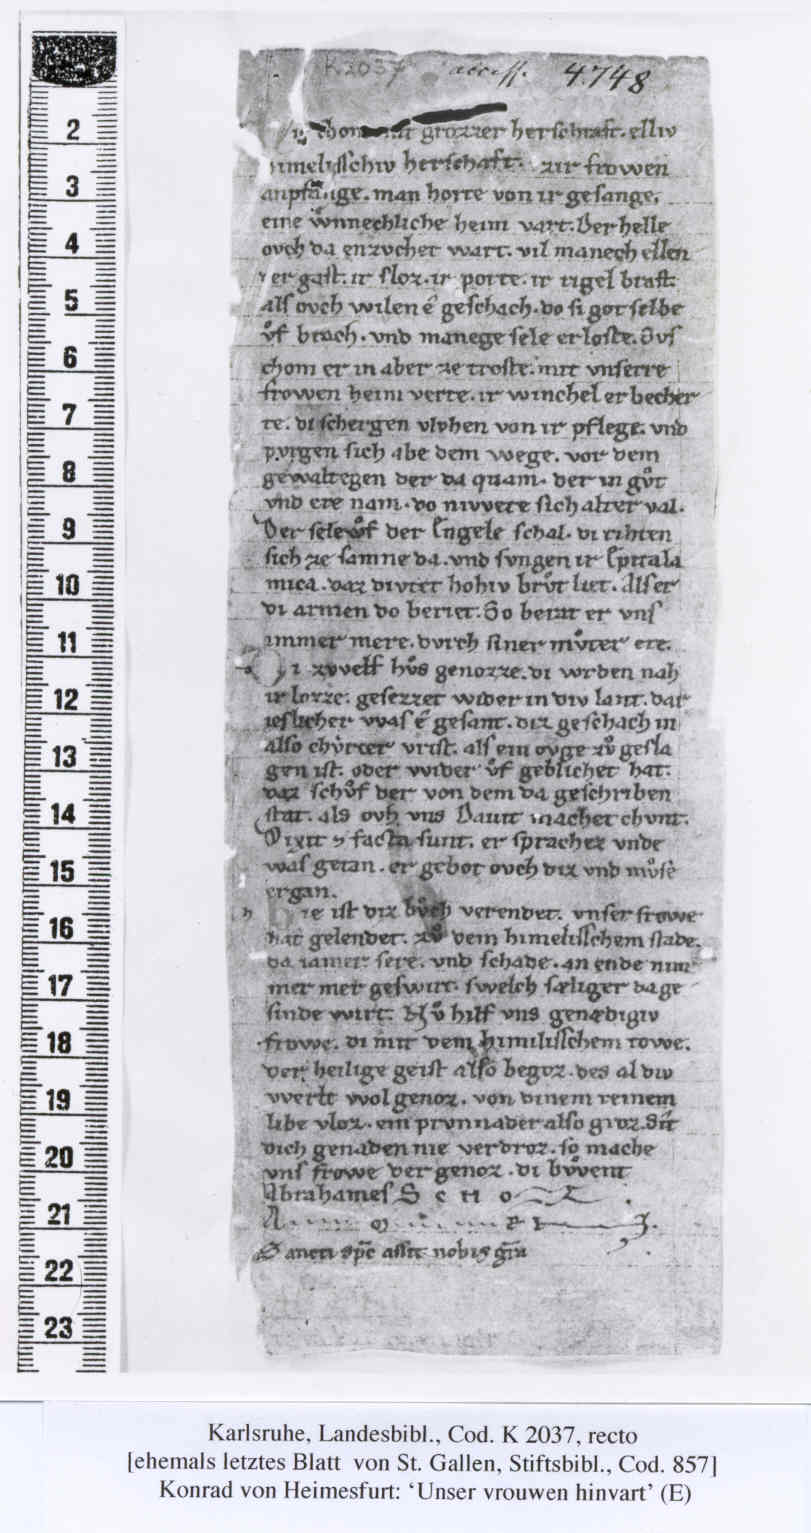 2
3
4
5
6
7
8
9
10
11
12
13
14
15
16
17
18
19
20
21
22
23
K2037 access. 4.748
chom mit grozzer herschraft. elliv
himelisschiv herschaft. zir frowen
anpfange. man horte von ir gesange.
eine wͦnnechliche heim vart. Der helle
ovch da enzvchet wart. vil manech ellen
er gast. ir sloz. ir porte. ir rigel brast.
als ovch wilen e geschach. do si got selbe
vͦf brach. vnd manege sele erloste. Svs
chom er in aber ze troste. mit vnserre
frowen heim verte. ir winchel er becher
te. di schergen vlvhen von ir pflege. vnd
pvrgen sich abe dem wege. vor dem
gewaltegen der da quam. der in gvͦt
vnd ere nam. do nivvete sich alter val.
Der sele wͦf der engele schal. di rihten
sich ze samne da. vnd svngen ir epitala
mica. daz divtet hohiv brvͦt liet. Alser
di armen do beriet. So berat er vns
immer mere. dvrch siner mvͦter ere.
i zwelf hvͦs genozze. di wrden nah
ir lozze. gesezzet wider in div lant. dar
ieslicher was e gesant. diz geschach in
also chvrcer vrist. als ein ovge zvͦ gesla
gen ist. oder wider vͦf geblichet hat.
daz schvͦf der von dem da geschriben
stat. als ovh vns Dauit machet chvnt.
Dixit ⁊ facta sunt. er sprachez vnde
was getan. er gebot ovch diz vnd mvͦse
ergan.
h ie ist diz bvͦch verendet. vnser frowe
hat gelendet. zvͦ dem himelisschem stade.
da iamer sere. vnd schade. an ende nim
mer mer geswirt. swelch sæliger dage
sinde wirt. Nvͦ hilf vns genædigiv
frowe. di mit dem himilisschem towe.
der heilige geist also begoz. des al div
werlt wol genoz. von dinem reinem
libe vloz. ein prvnnader also groz. Sit
dich genaden nie verdroz. so mache
vns frowe der genoz. di bvͦwent
Abrahames S c h o z
Sancti spc assit nobis gra
Karlsruhe, Landesbibl., Cod. K 2037, recto
[ehemals letztes Blatt von St. Gallen, Stiftsbibl., Cod. 857]
Konrad von Heimesfurt: ‘Unser vrouwen hinvart’ (E)